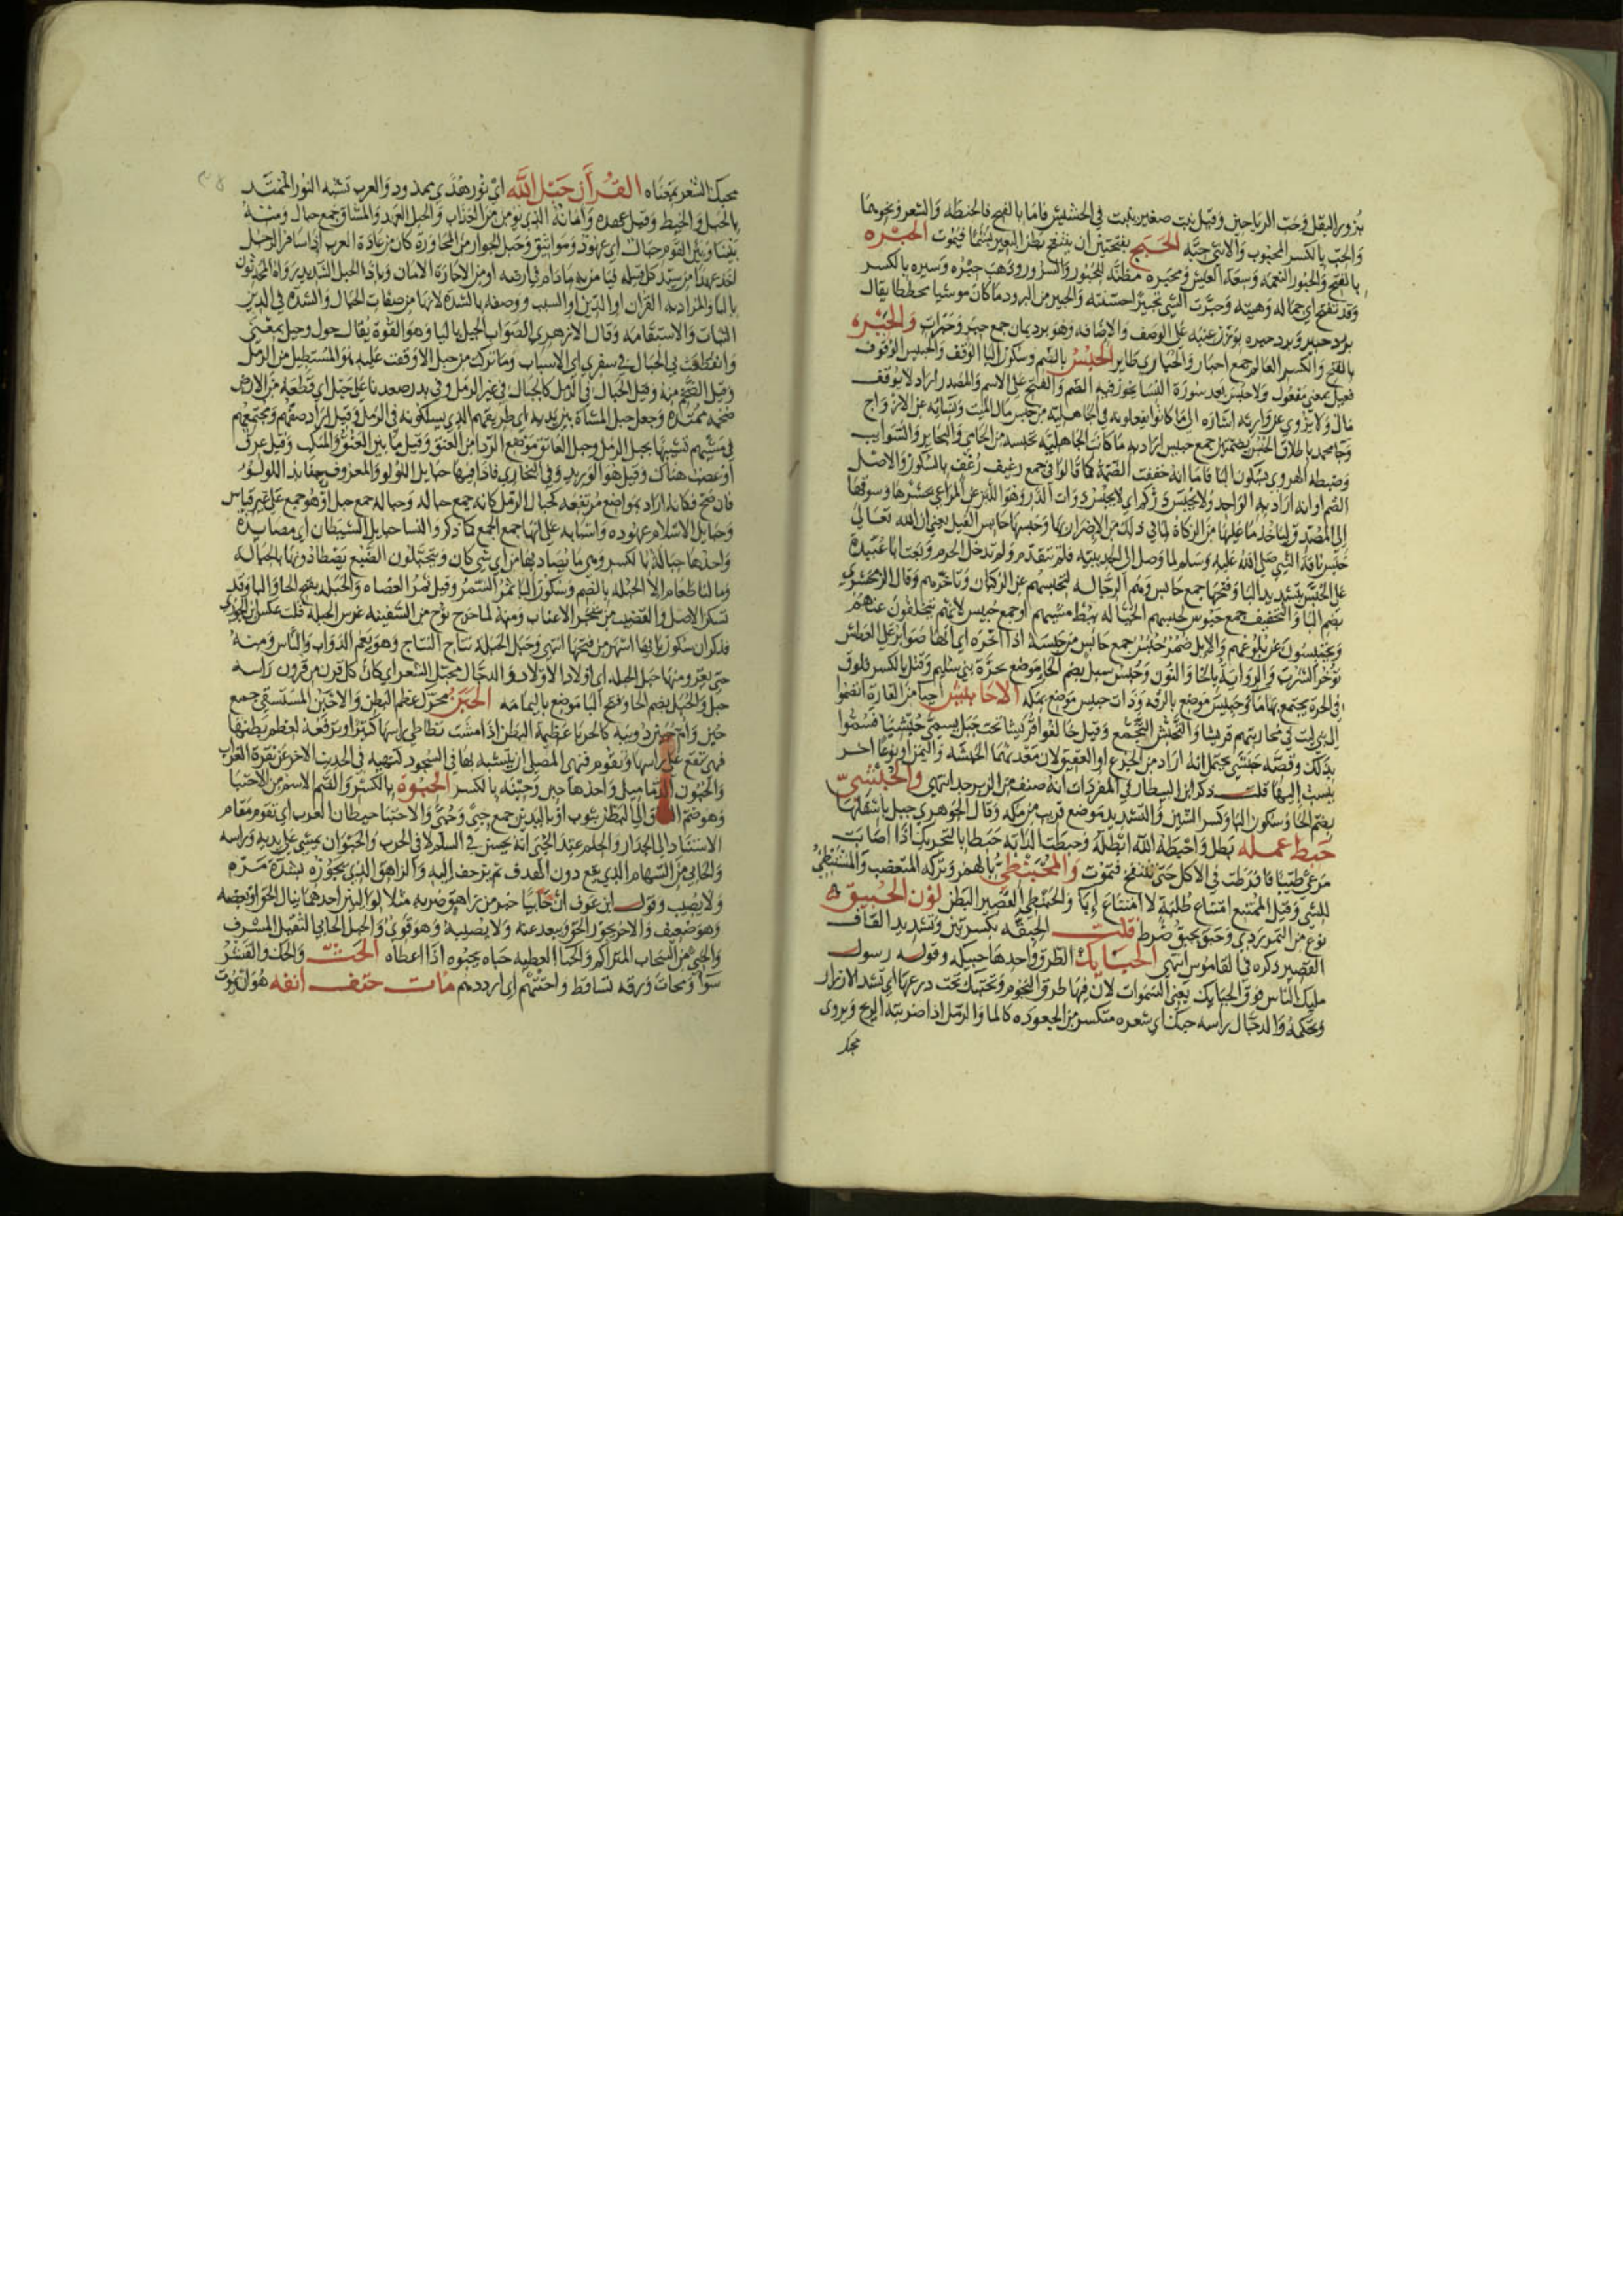 بزور البقل وحب الرياحين وقيل نبت صغير ينبت في الحشيش فاما بالفتح فالحنطة والشعير ونحوهما
والحب بالكسر المحبوب والانثى حبة الحبج بفتحتين ان ينتفخ بطن البعير بشما فيموت الحبره
بالفتح والحبور النعمة وسعة العيش ومحبره مظنة للحبور والسرور وذهب حبره وسبره بالكسر
وقد تفتح اي جماله وهيئته وحبرت الشي تحبيرا حسنته والحبير من البرود ما كان موشيا مخططا يقال
برد حبير وبرد حبره بوزن عنبه على الوصف والاضافه وهو برد يمان جمع حبر وحبرات والحبره
بالفتح والكسر العالم جمع احبار والحباري طاير الحبس بالضم وسكون البا الوقف والحبيس الوقوف
فعيل بمعنى مفعول ولا حبس بعد سورة النسا يجوز فيه الضم والفتح على الاسم والمصدر اراد لا يوقف
مال ولا يزوى عن وارثه اشارة الى ما كانوا يفعلونه في الجاهلية من حبس مال الميت ونسايه عن الازواج
وجا محمد باطلاق الحبس بضمتين جمع حبيس اراد به ما كانت الجاهلية تحبسه من الحامي والبحاير والسوايب
وضبطه الهروي بسكون البا فاما انه خففت الضمة كما قالوا في جمع رغيف رغف بالسكون والاصل
الضم او انه اراد به الواحد ولا يحبس دركم اي لا يحبس ذوات الدر وهو اللبن عن المراعي بحشرها وسوقها
الى المصدق لياخذ ما عليها من الزكاة لما في ذلك من الاضرار بها وحبسها حابس الفيل يعني ان الله تعالى
حبس ناقة النبي صلى الله عليه وسلم لما وصل الى الحديبيه فلم تتقدم ولم تدخل الحرم وبعث ابا عبيدة
على الحبس بتشديد البا وفتحها جمع حابس وهم الرجالة لتحبسهم عن الركبان وتاخرهم وقال الزمخشري
بضم البا والتخفيف جمع حبوس لحبسهم الخيالة ببطء مشيهم او جمع حبيس لانهم يتخلفون عنهم
ويحتبسون عن بلوغهم والابل ضمر حبس جمع حابس من حبسه اذا اخره اي انها صوابر على العطش
توخر الشرب والرواية بالخا والنون وحبس سيل بضم الحا موضع بحرة بني سليم وقيل بالكسر فلوق
في الحرة يجتمع بها ما وحبيس موضع بالرقه وذات حبيس موضع بمكه الاحابيش احيا من القارة انضموا
الى بني ليث في محاربتهم قريشا والتحبش التجمع وقيل حالفوا قريشا تحت جبل يسمى حبشيا فسموا
بذلك وقصة حبشي يحتمل انه اراد من الجزع او العقيق لان معدنهما الحبشه واليمن او نوعا اخر
ينسب اليها قلت ذكر ابن البيطار في المفردات انه صنف من الزبرجد انتهى والحبشي
بضم الحا وسكون البا وكسر الشين والتشديد موضع قريب من مكه وقال الجوهري جبل باسفلها
حبط عمله بطل واحبطه الله ابطله وحبطت الدابة حبطا بالتحريك اذا اصابت
مرعى طيبا فافرطت في الاكل حتى تنتفخ فتموت والمحبنطي بالهمز وتركه المتغضب والمستبطي
للشي وقيل الممتنع امتناع طلبة لا امتناع اباء والحبنطى القصير البطن لون الحبيق
نوع من التمر ردي وحبق يحبق ضرط قلت الحبقه بكسرتين وتشديد القاف
القصير ذكره في القاموس انتهى الحبايك الطرق واحدها حبيكه وقوله رسول
مليك الناس فوق الحبايك يعني السموات لان فيها طرق النجوم وتحتبك تحت درعها اي تشد الازار
وتحكمه والدجال راسه حبك اي شعره متكسر من الجعوده كالما والرمل اذا ضربته الريح ويروى
محبك
محبك الشعر بمعناه القرآن حبل الله اي نور هدي ممدود والعرب تشبه النور الممتد
بالحبل والخيط وقيل عهده وامانه الذي يومن من العذاب والحبل العهد والميثاق جمع حبال ومنه
بيننا وبين القوم حبال اي عهود ومواثيق وحبل الجوار من المجاورة كان من عادة العرب اذا سافر الرجل
اخذ عهدا من سيد كل قبيلة فيامن به مادام في ارضه او من الاجارة الامان وياذا الحبل الشديد رواه المحدثون
بالبا والمراد به القرآن او الدين او السبب ووصفه بالشدة لانها من صفات الحبال والشدة في الدين
الثبات والاستقامة وقال الازهري الصواب الحيل باليا وهو القوة يقال حول وحيل بمعنى
وانقطعت بي الحبال في سفري اي الاسباب وما تركت من حبل الا وقفت عليه هو المستطيل من الرمل
وقيل الضخم منه وقيل الحبال في الرمل كالجبال في غير الرمل وفي بدر صعدنا على حبل اي قطعة من الارض
ضخمه ممتدة وجعل حبل المشاة بين يديه اي طريقهم الذي يسلكونه في الرمل وقيل اراد صفهم ومجتمعهم
في مشيهم تشبيها بحبل الرمل وحبل العاتق موضع الردا من العنق وقيل ما بين العنق والمنكب وقيل عرق
او عصب هناك وقيل هو الوريد وفي البخاري فاذا فيها حبايل اللولو والمعروف جنابذ اللولو
فان صح فكانه اراد به مواضع مرتفعه كحبال الرمل كانه جمع حباله وحباله جمع حبل او هو جمع على غير قياس
وحبايل الاسلام عهوده واسبابه على انها جمع الجمع كما ذكر والنسا حبايل الشيطان اي مصايده
واحدها حبالة بالكسر وهي ما يصاد بها من اي شي كان ويتحبلون الضبع يصطادونها بالحبالة
وما لنا طعام الا الحبله بالضم وسكون البا ثمر السمر وقيل ثمر العضاه والحبله بفتح الحا والبا وقد
تسكن الاصل والقضيب من شجر الاعناب ومنه لما خرج نوح من السفينه غرس الحبلة قلت عكس ابن الجوزي
فذكر ان سكون بايها اشهر من فتحها انتهى وحبل الحبلة نتاج النتاج وهو يعم الدواب والناس ومنه
حتى يغزو منها حبل الحبله اي اولاد الاولاد والدجال محبل الشعر اي كان كل قرن من قرون راسه
حبل والحبل بضم الحا وفتح البا موضع باليمامه الحبن محرك عظم البطن والاحبن المستسقي جمع
حبن وام حبين دويبة كالحربا عظيمة البطن اذا مشت تطاطي راسها كثيرا وترفعه لعظم بطنها
فهي تقع على راسها وتقوم فنهى المصلي ان يتشبه بها في السجود كنهيه في الحديث الاخر عن نقرة الغراب
والحبون الدماميل واحدها حبن وحبنه بالكسر الحبوة بالكسر والضم الاسم من الاحتبا
وهو ضم الساق الى البطن بثوب او باليدين جمع حبى وحبى والاحتبا حيطان العرب اي تقوم مقام
الاستناد الى الجدار والحلم عند الحبى انه يحسن في السلم لا في الحرب والحبو ان يمشي على يديه وراسه
والحابي من السهام الذي يقع دون الهدف ثم يزحف اليه والزاهق الذي يجوزه بشدة مره
ولا يصيب وقول ابن عوف ان حابيا خير من زاهق ضربه مثلا لواليين احدهما ينال الحق او بعضه
وهو ضعيف والاخر يجوز الحق ويبعد عنه ولا يصيبه وهو قوي والحبل الحابي الثقيل المشرف
والحبي من السحاب المتراكم والحبا العطيه حباه يحبوه اذا اعطاه الحت والحك والقشر
سوا وتحات ورقه تساقط واحتتهم اي ارددهم مات حتف انفه هو ان يموت